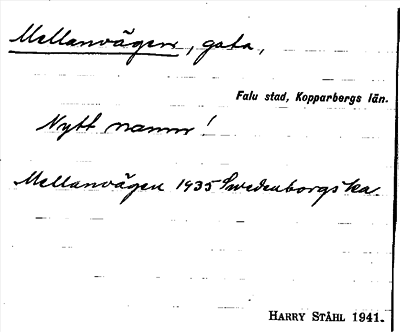 Mellanvägen, gata,
Falu stad, Kopparbergs län.
Nytt namn!
Mellanvägen 1935 Swedenborgska.
HARRY STÅHL 1941.